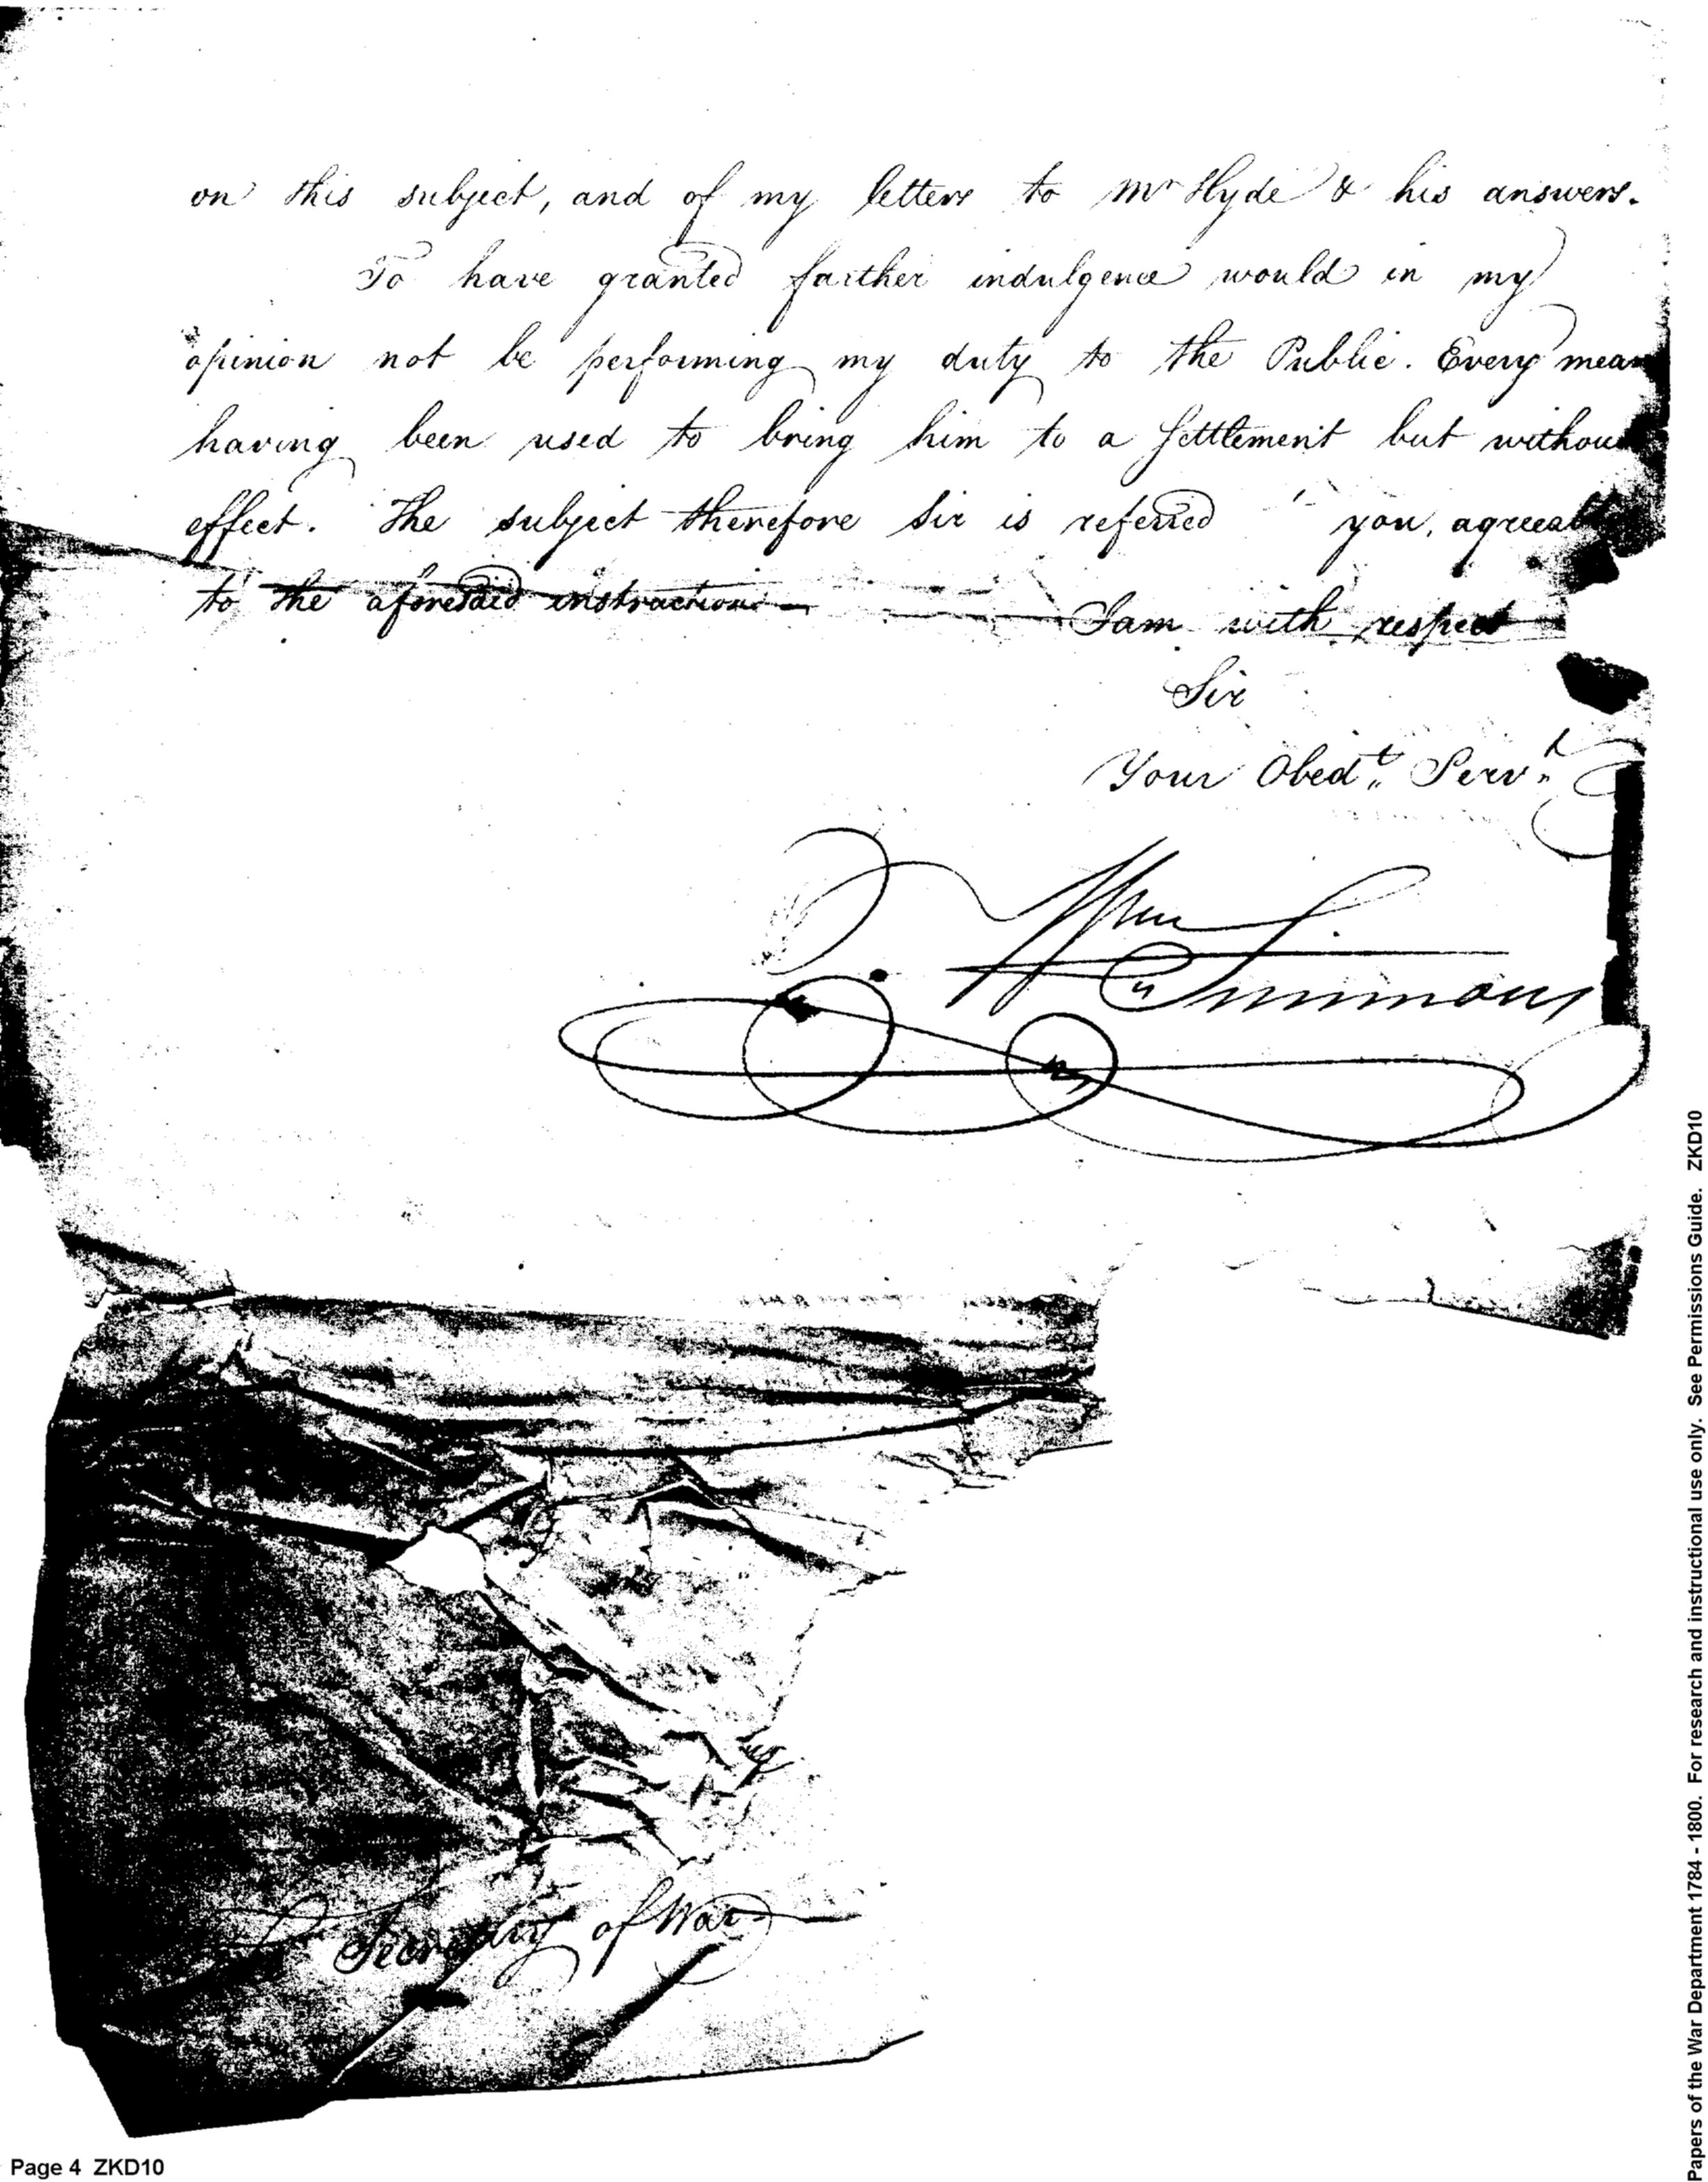 on this subject, and of my letters to Mr Hyde & his answers.
To have granted farther indulgence would in my
opinion not be performing my duty to the Public. Every mean
having been used to bring him to a Settlement but withou
effect. The subject therefore Sir is referred you, agreeab
to the aforesaid instructions
I am with respect
Sir
Your Obedt Servt
Wm Simmons
Secretary of War
Page 4 ZKD10
Papers of the War Department 1784 - 1800. For research and instructional use only. See Permissions Guide. ZKD10